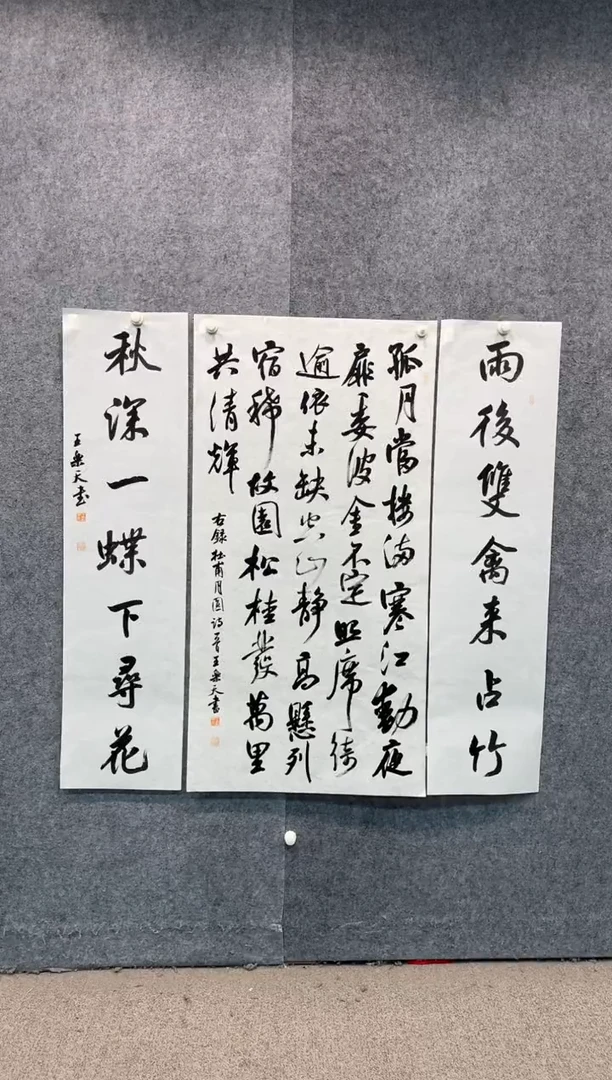 雨後雙禽来占竹
孤月當樓滿寒江動夜
扉委波金不定照席綺
逾依未缺空山静高懸列
宿稀故園松桂發萬里
共清輝
右錄杜甫月圓詩一首王樂天書
秋深一蝶下尋花
王樂天書